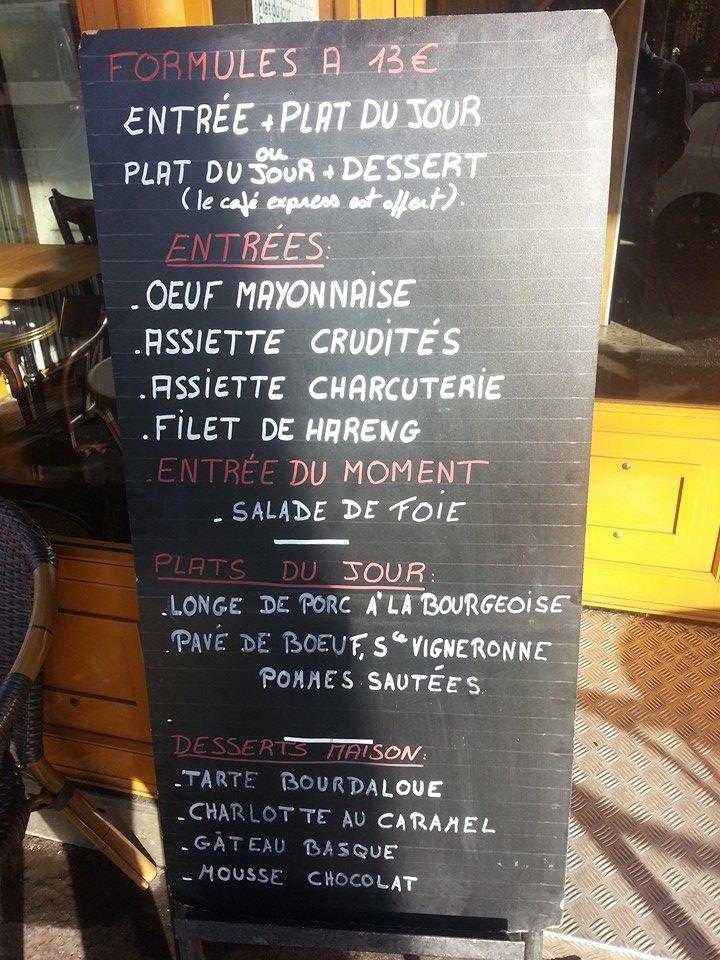 Plat du jour
FORMULES A 13€
ENTRÉE + PLAT DU JOUR
ou
PLAT DU JOUR + DESSERT
(le café express est offert).
ENTRÉES:
. OEUF MAYONNAISE
. ASSIETTE CRUDITÉS
. ASSIETTE CHARCUTERIE
. FILET DE HARENG
. ENTRÉE DU MOMENT
- SALADE DE FOIE
PLATS DU JOUR:
. LONGE DE PORC A' LA BOURGEOISE
. PAVÉ DE BOEUF, Sce VIGNERONNE
POMMES SAUTÉES
DESSERTS MAISON:
- TARTE BOURDALOUE
- CHARLOTTE AU CARAMEL
- GÂTEAU BASQUE
- MOUSSE CHOCOLAT